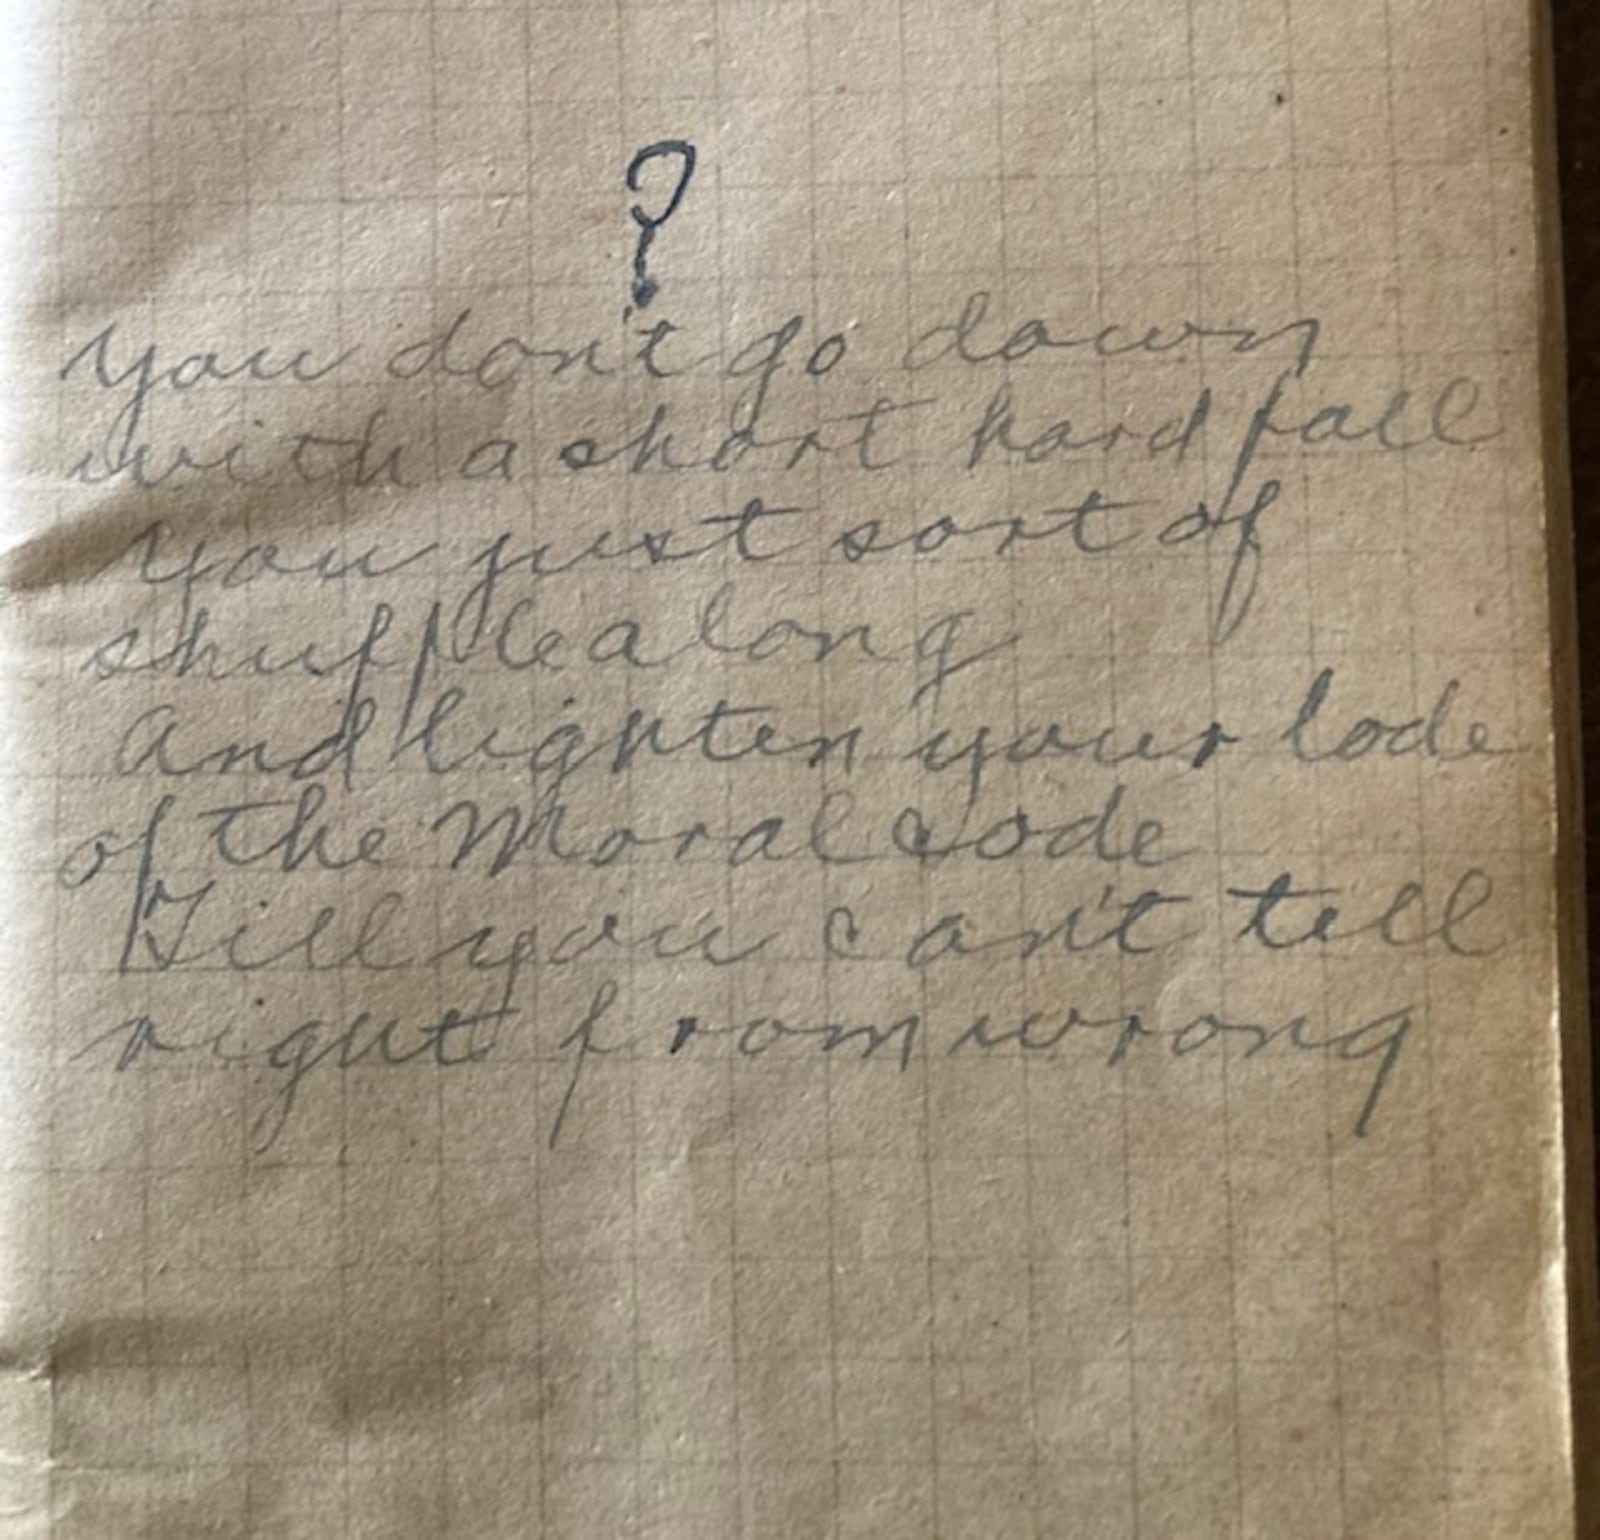 ?
you don't go down
with a short hard fall
you just sort of
shuffle along
and lighten your lode
of the Moral code
Till you can't tell
right from wrong